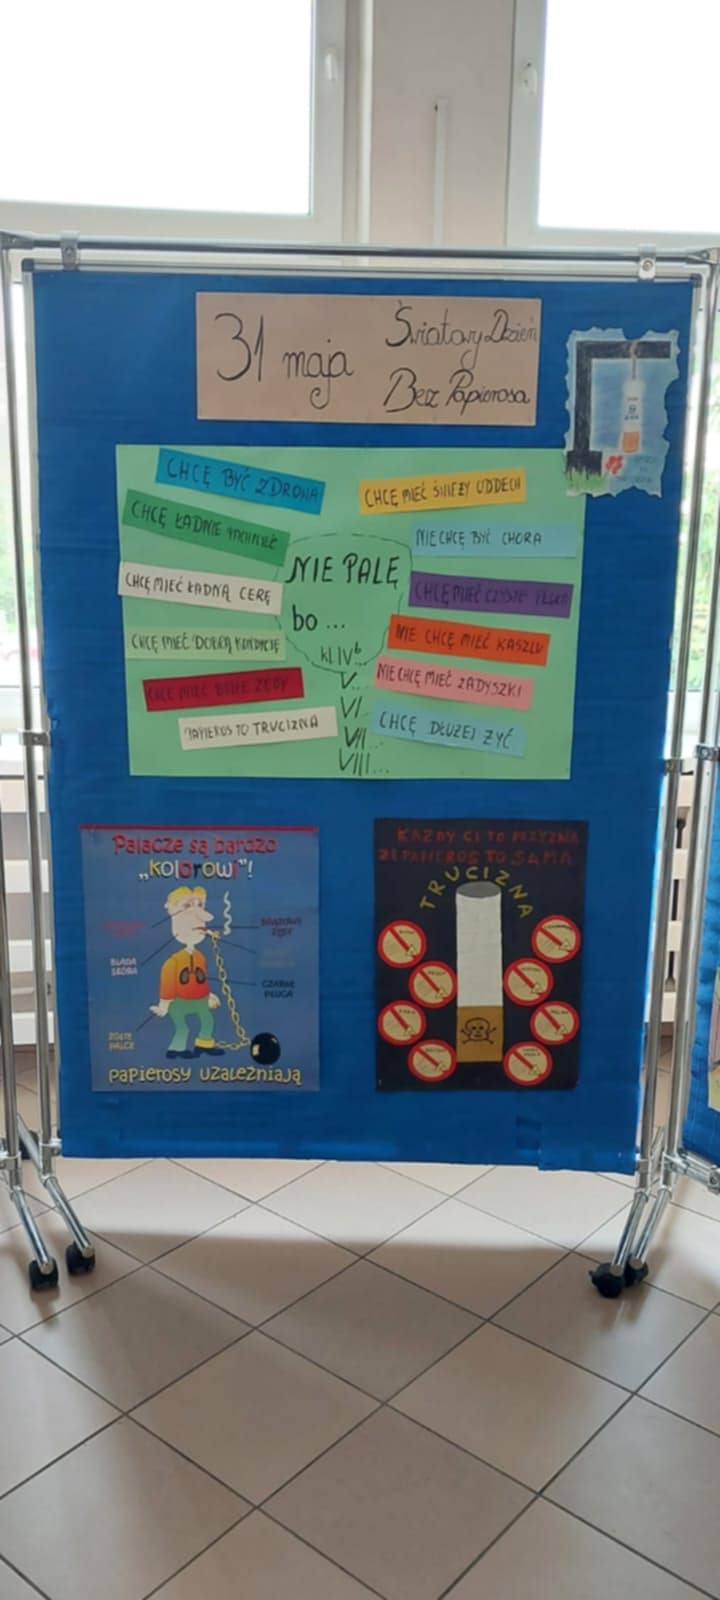 31 maja
Światowy Dzień
Bez Papierosa
CHCĘ BYĆ ZDROWA
CHCĘ ŁADNIE
CHCĘ MIEĆ ŁADNĄ CERĘ
CHCĘ MIEĆ DOBRĄ KONDYCJĘ
CHCĘ MIEĆ BIAŁE ZĘBY
PAPIEROS TO TRUCIZNA
NIE PALĘ
bo ...
kl IVb
V...
VI...
VII...
VIII...
CHCĘ MIEĆ ŚWIEŻY ODDECH
NIE CHCĘ BYĆ CHORA
CHCĘ MIEĆ CZYSTE PŁUCA
NIE CHCĘ MIEĆ KASZLU
NIE CHCĘ MIEĆ ZADYSZKI
CHCĘ DŁUŻEJ ŻYĆ
Palacze są bardzo
„kolorowi"!
BLADA
SKÓRA
ŻÓŁTE
PALCE
BRĄZOWE
ZĘBY
CZARNE
PŁUCA
papierosy uzależniają
KAŻDY CI TO PRZYZNA
ŻE PAPIEROS TO SAMA
TRUCIZNA